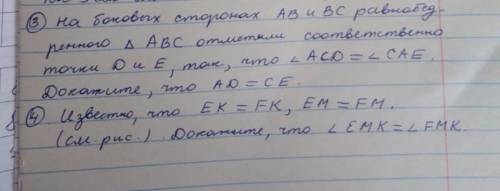 ③ На боковых сторонах АВ и ВС равнобед-
ренного △ АВС отметили соответственно
точки D и E, так, что ∠ACD = ∠CAE.
Докажите, что AD = CE.
④ Известно, что EK = FK, EM = FM.
(см. рис.) Докажите, что ∠EMK = ∠FMK.